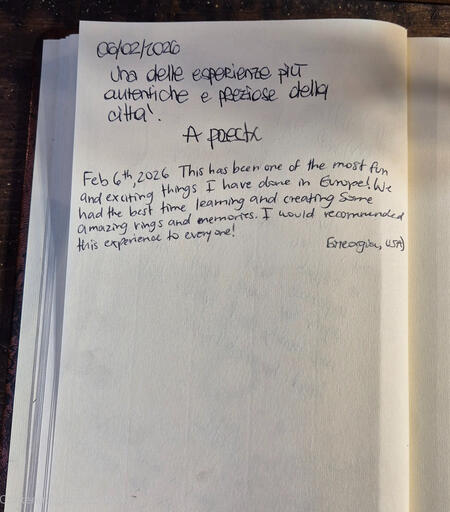 06/02/2026
Una delle esperienze più
autentiche e preziose della
città.
A presto
Feb 6th, 2026 This has been one of the most fun
and exciting things I have done in Europe! We
had the best time learning and creating some
amazing rings and memories. I would recommended
this experience to everyone!
USA)